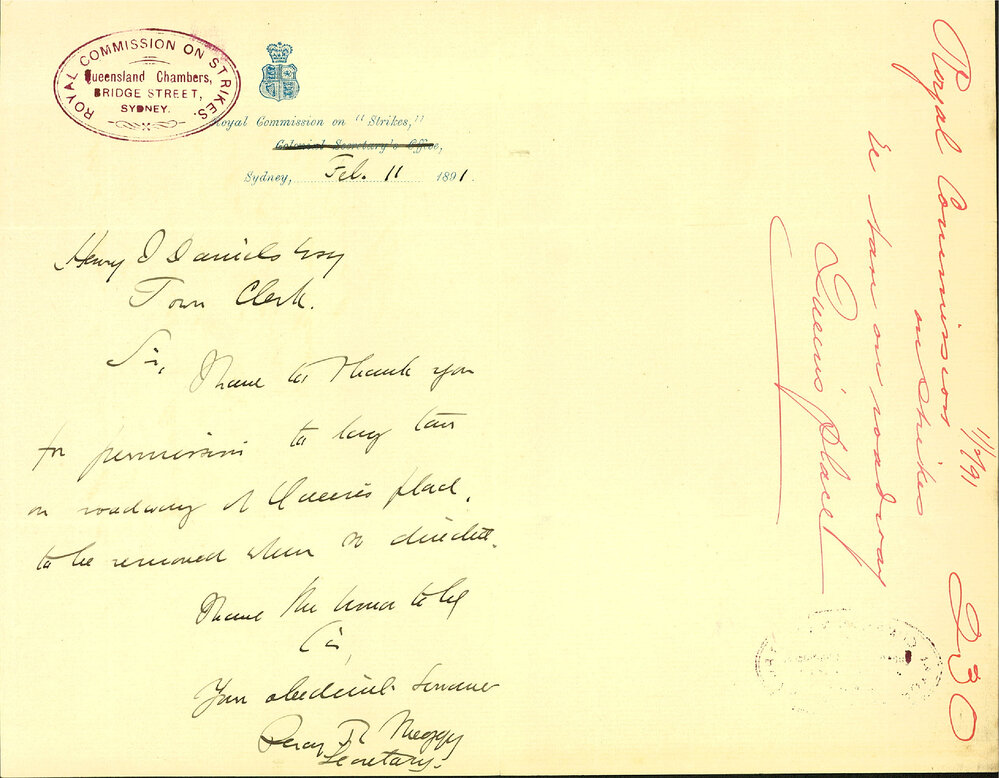 ROYAL COMMISSION ON STRIKES.
Queensland Chambers,
BRIDGE STREET,
SYDNEY.
Royal Commission on "Strikes,"
Colonial Secretary's Office,
Sydney, Feb. 11 1891.
Henry J Daniels Esq
Town Clerk.
Sir,
I have to thank you
for permission to lay tan
on roadway of Queens place,
to be removed when so directed.
I have the honor to be
Sir,
Your obedient Servant
Percy R Meggy
Secretary.
Royal Commission
on Strikes
11/2/91
re tan on roadway
Queens place